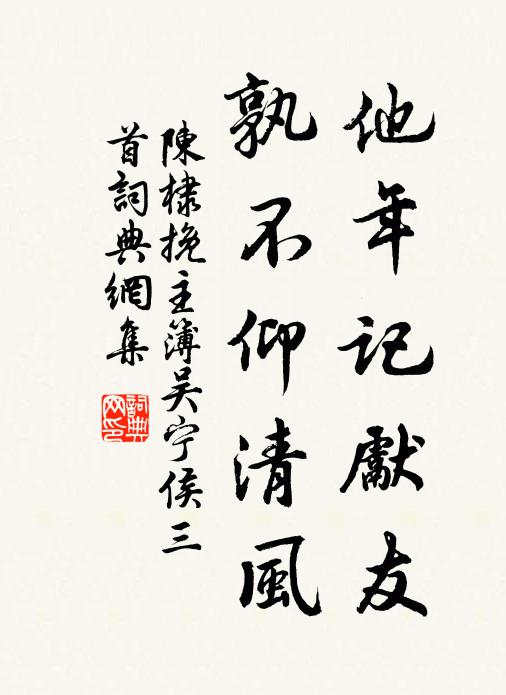 他年記獻友
孰不仰清風
陳棣挽主簿吴宁侯三
首詞典網集
詞典
网印